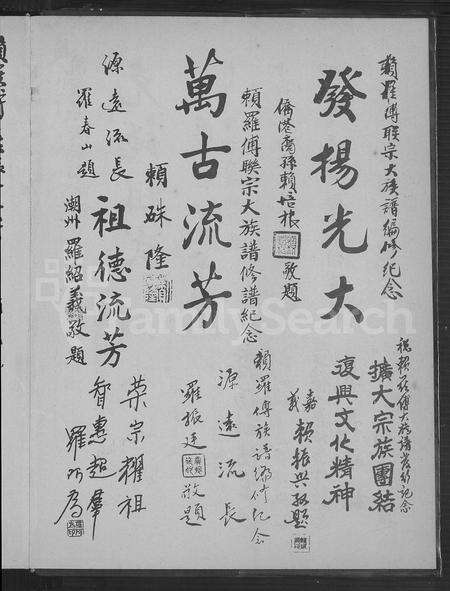 賴羅傅聯宗大族譜編修紀念
發揚光大
僑港裔孫賴培根敬題
賴羅傅聯宗大族譜修譜紀念
萬古流芳
賴硃隆
源遠流長
羅春山題
祖德流芳
潮州羅紹羲敬題
祝賴羅傅大族譜發行紀念
擴大宗族團結
復興文化精神
嘉義賴振興敬題
賴羅傅族譜編修紀念
源遠流長
羅振廷敬題
榮宗耀祖
智惠超羣
羅
FamilySearch